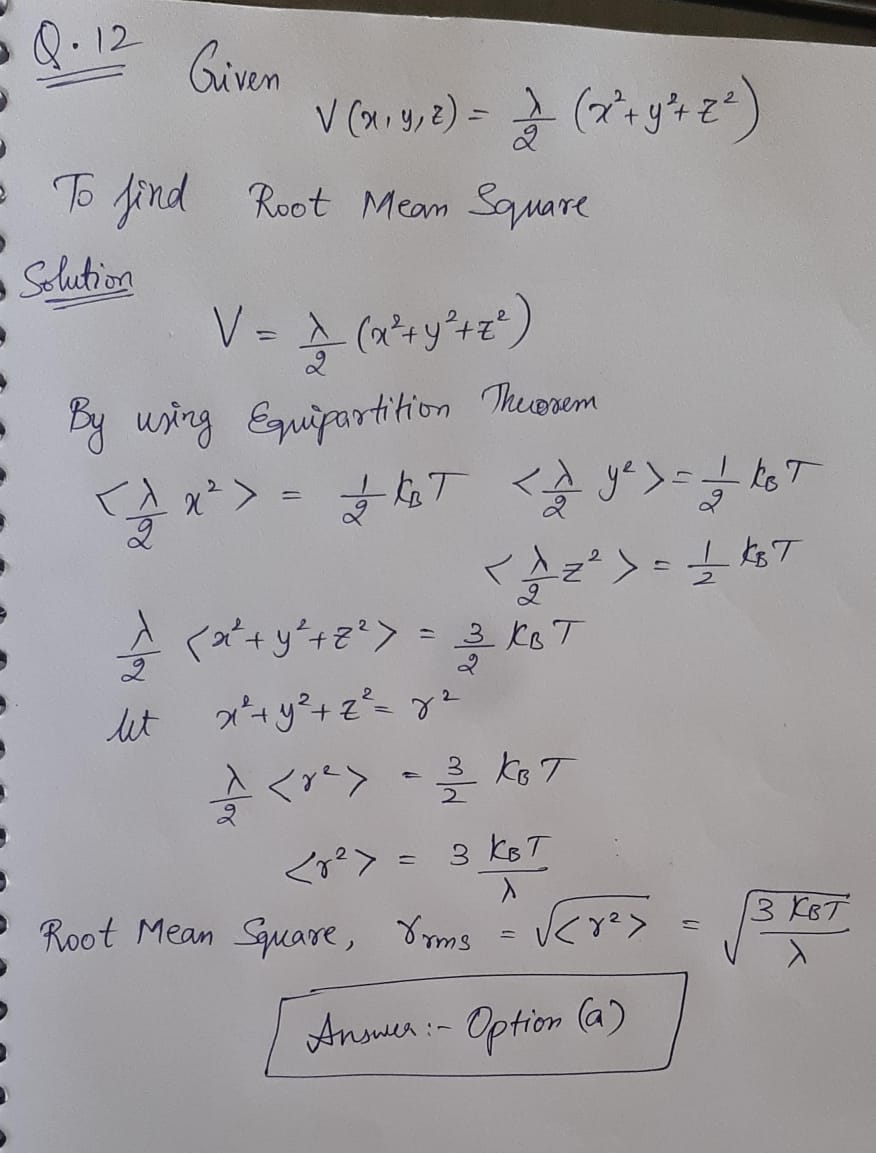 Q.12 Given
V(x, y, z) = λ/2 (x² + y² + z²)
To find Root Mean Square
Solution
V = λ/2 (x² + y² + z²)
By using Equipartition Theorem
<λ/2 x²> = 1/2 K_B T <λ/2 y²> = 1/2 K_B T
<λ/2 z²> = 1/2 K_B T
λ/2 <x² + y² + z²> = 3/2 K_B T
let x² + y² + z² = r²
λ/2 <r²> = 3/2 K_B T
<r²> = 3 K_B T/λ
Root Mean Square, r_rms = √<r²> = √(3 K_B T/λ)
Answer :- Option (a)